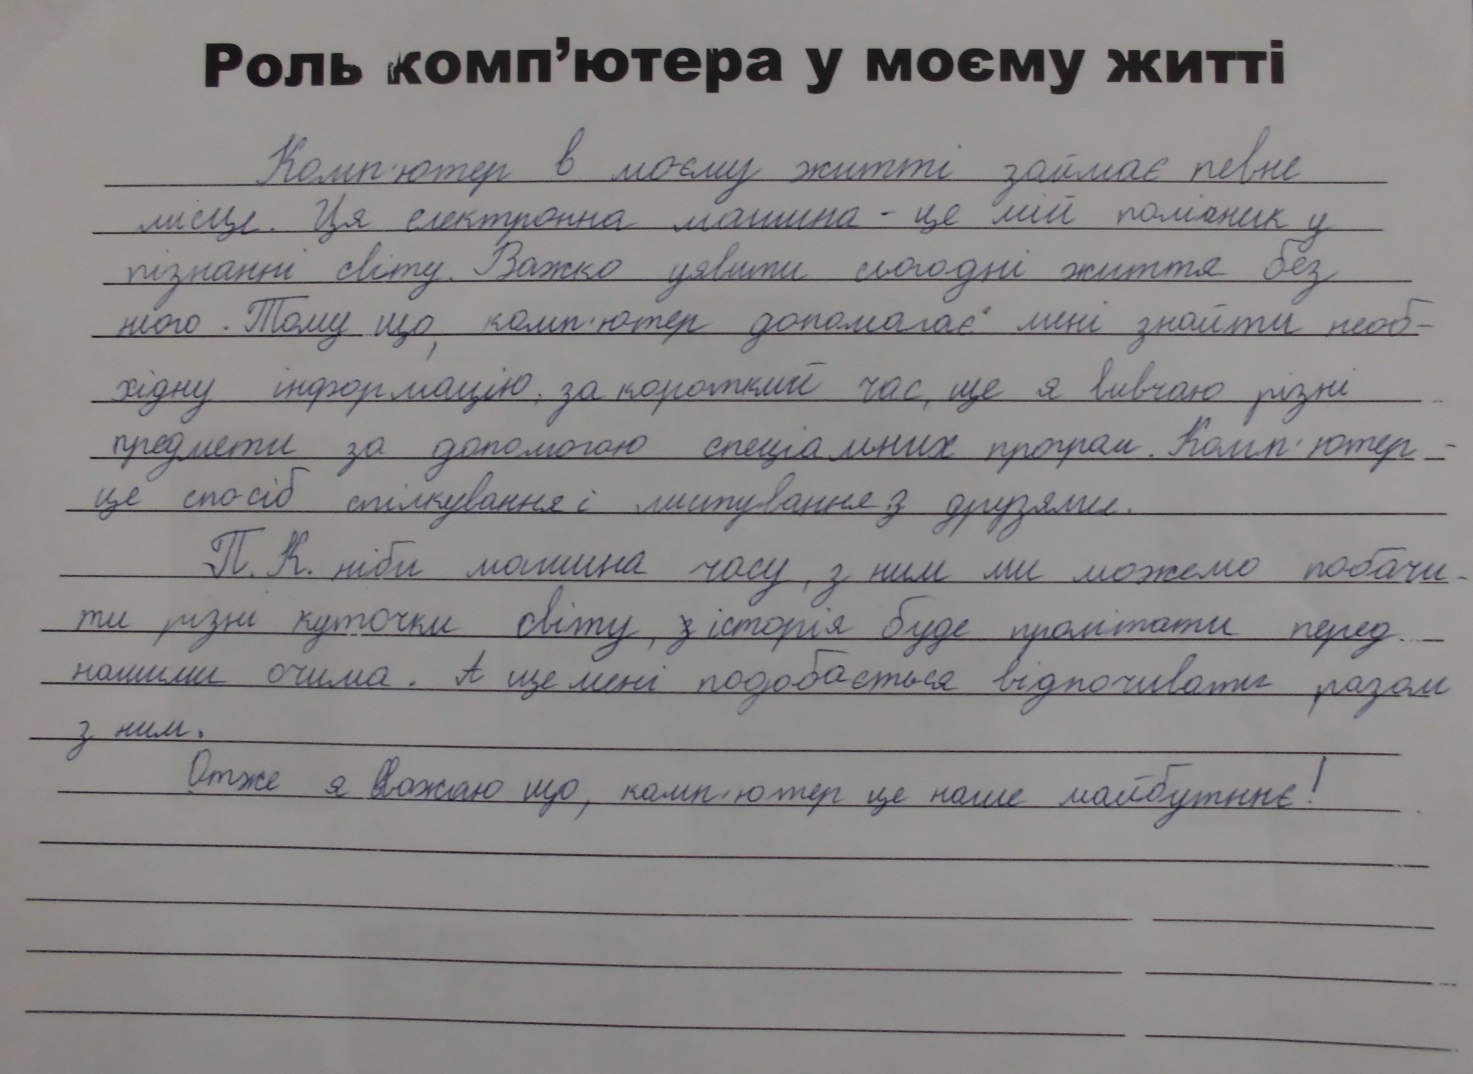 Роль комп’ютера у моєму житті
Комп'ютер в моєму житті займає певне
місце. Ця електронна машина - це мій помічник у
пізнанні світу. Важко уявити сьогодні життя без
нього. Тому що, комп'ютер допомагає мені знайти необ-
хідну інформацію за короткий час, ще я вивчаю різні
предмети за допомогою спеціальних програм. Комп'ютер -
це спосіб спілкування і листування з друзями.
П.К. ніби машина часу, з ним ми можемо побачи-
ти різні куточки світу, історія буде пролітати перед
нашими очима. А ще мені подобається відпочивати разом
з ним.
Отже я вважаю що, комп'ютер це наше майбутнє!